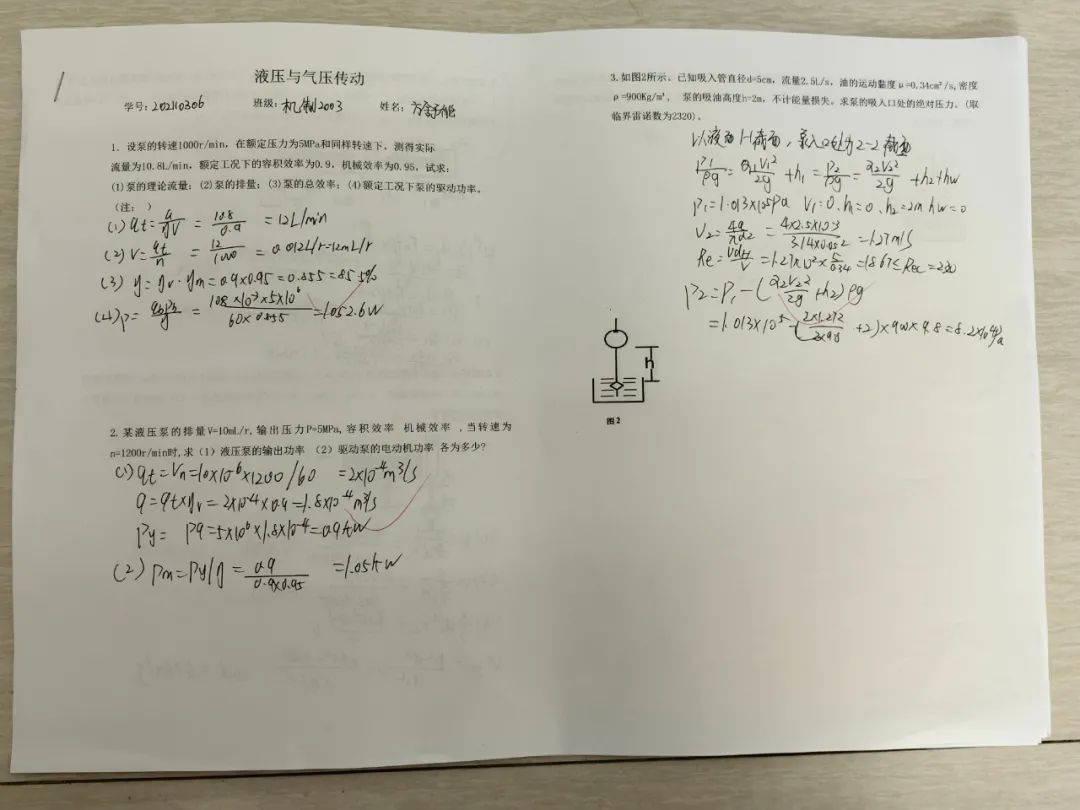 液压与气压传动
学号：202110306 班级：机制2003 姓名：
1. 设泵的转速1000r/min，在额定压力为5MPa和同样转速下，测得实际
流量为10.8L/min，额定工况下的容积效率为0.9，机械效率为0.95，试求：
(1)泵的理论流量；(2)泵的排量；(3)泵的总效率；(4)额定工况下泵的驱动功率。
(注： )
(1) qt=q/ηV = 10.8/0.9 = 12L/min
(2) V=qt/n = 12/1000 = 0.012L/r=12mL/r
(3) η=ηv·ηm=0.9×0.95=0.855=85.5%
(4) P= = 10.8×10⁻³×5×10⁶/60×0.855 =1052.6W
2.某液压泵的排量V=10mL/r,输出压力P=5MPa,容积效率 机械效率 ,当转速为
n=1200r/min时,求（1）液压泵的输出功率 （2）驱动泵的电动机功率 各为多少?
(1) qt=Vn=10×10⁻⁶×1200/60 =2×10⁻⁴m³/s
q=qt×ηv=2×10⁻⁴×0.9=1.8×10⁻⁴m³/s
Py= Pq=5×10⁶×1.8×10⁻⁴=0.9kW
(2) Pm=Py/η=0.9/0.9×0.95 =1.05kW
3.如图2所示。已知吸入管直径d=5cm，流量2.5L/s，油的运动黏度μ=0.34cm²/s,密度
ρ=900Kg/m³， 泵的吸油高度h=2m，不计能量损失。求泵的吸入口处的绝对压力。(取
临界雷诺数为2320)。
以液面1-1截面，泵入口处为2-2截面
P1/ρg = α1V1²/2g +h1 = P2/ρg = α2V2²/2g +h2+hw
P1=1.013×10⁵Pa V1=0、h1=0、h2=2m hw=0
V2=4q/πd² = 4×2.5×10⁻³/3.14×0.05² =1.27m/s
Re=Vd/V =1.27×10²×5/0.34=1867≤Rec=2320
P2=P1-(α2V2²/2g+h2)ρg
=1.013×10⁵-(2×1.27²/2×9.8+2)×900×9.8=8.2×10⁴Pa
h
图2